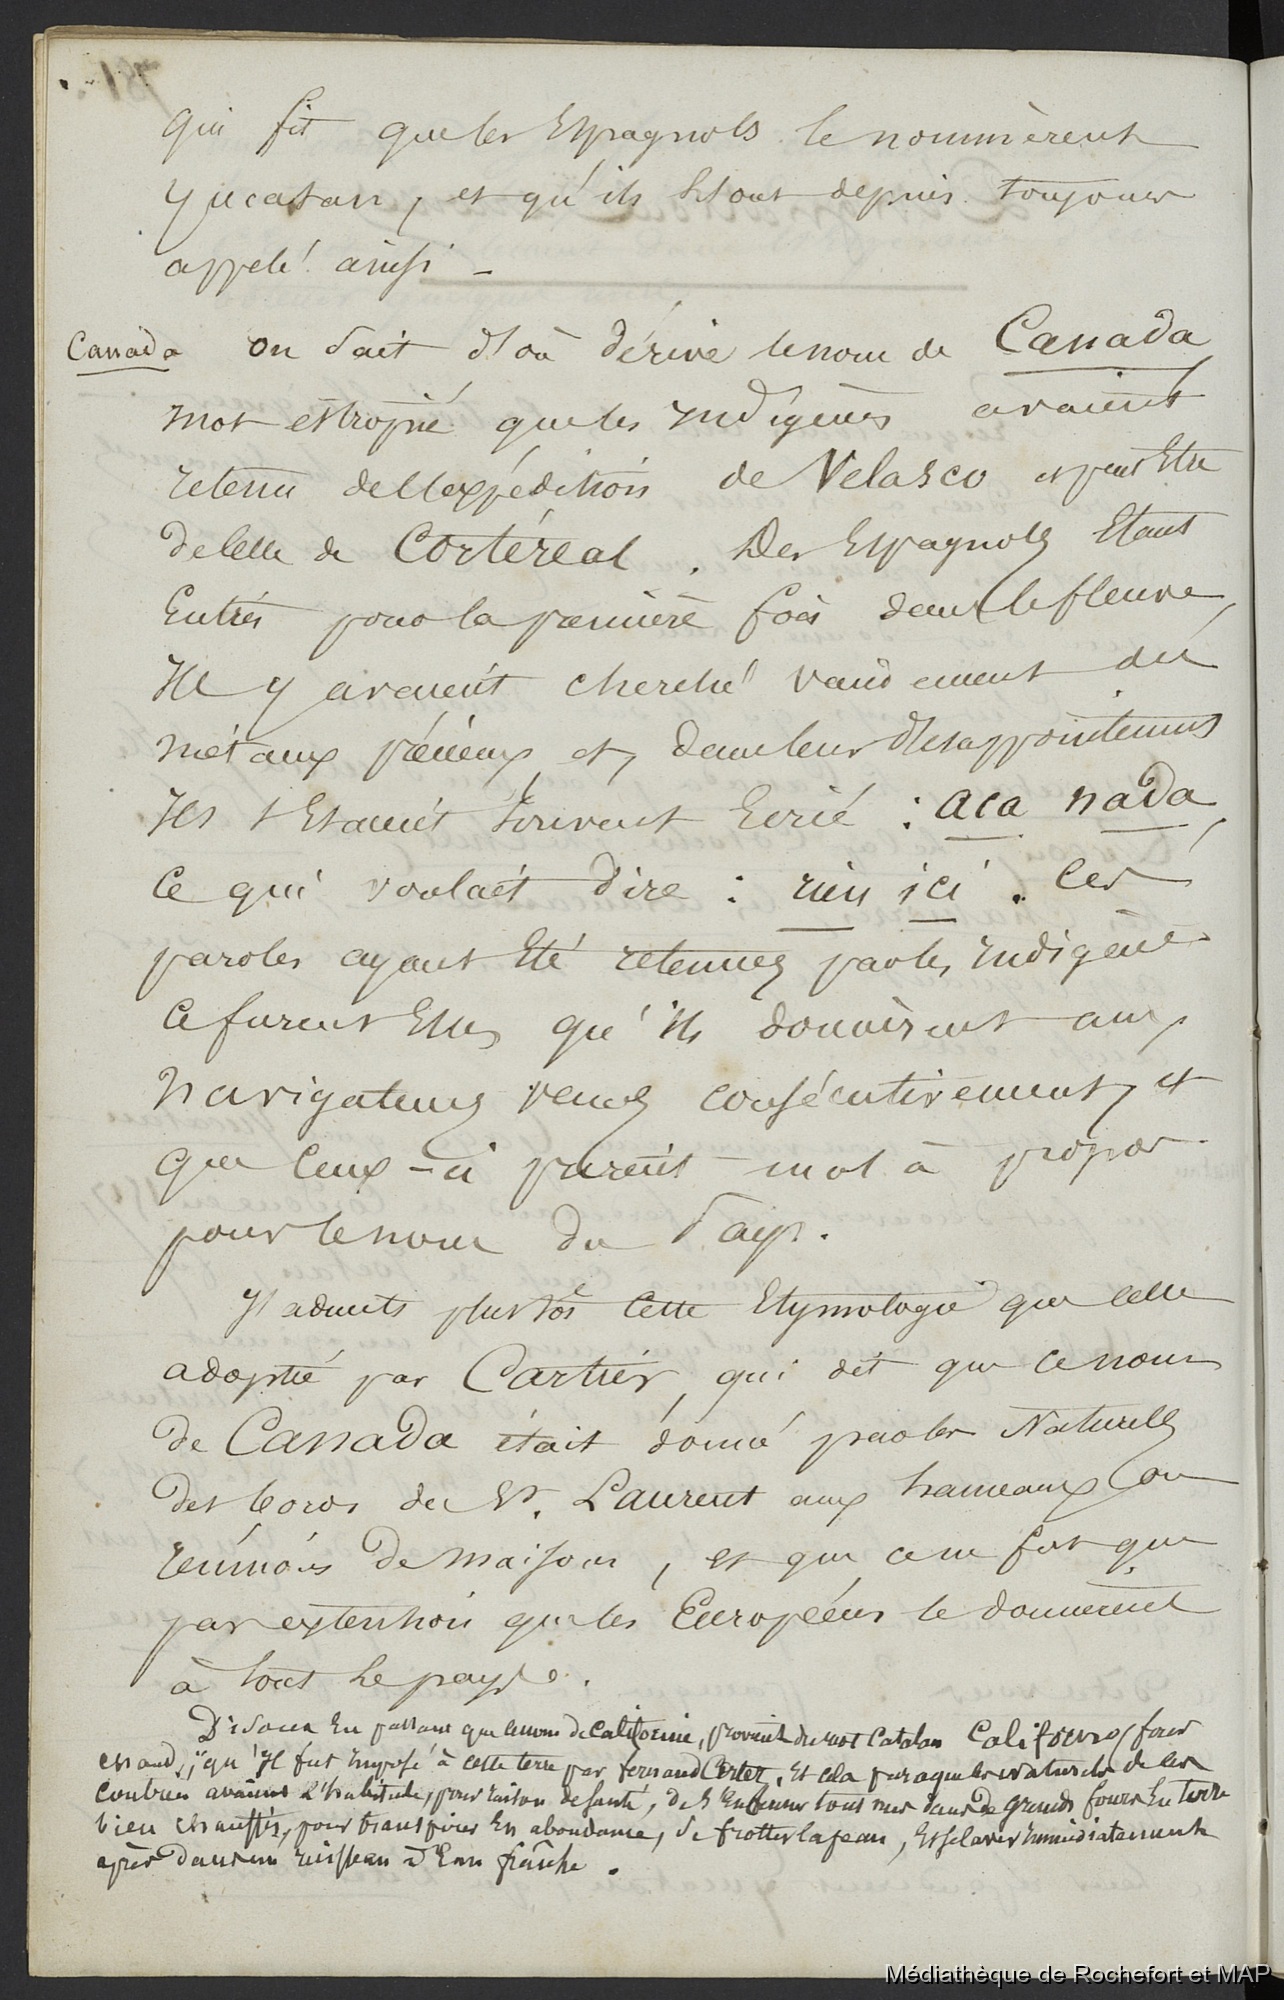 qui fit que les Espagnols le nommèrent
yucatan, et qu'ils l'ont depuis toujours
appelé ainsi -
Canada on sait d'où dérive le nom de Canada,
mot estropié que les indigènes avaient
retenu de l'expédition de Velasco et peut Etre
de celle de Cortéreal. Des Espagnols Etant
Entrés pour la première fois dans le fleuve,
Ils y avaient cherché vainement des
métaux précieux, et, dans leur désappointement
Ils s'Etaient souvent Ecrié : aca nada,
ce qui voulait dire : rien ici. Ces
paroles ayant Eté retenues par les indigènes
Ce furent Elles qu'ils donnèrent aux
navigateurs venus consécutivement, et
que ceux-ci prirent mal à propos
pour le nom du Pays.
J'admets plustôt cette Etymologie que celle
adoptée par Cartier, qui dit que ce nom
de Canada était donné par les Naturels
des bords du St. Laurent aux hameaux ou
réunions de maisons, et que ce ne fut que
par extension que les Européens le donnèrent
à tout le pays.
Disons En passant que le nom de Californie, provient du mot Catalan Californo, four
chaud, qu'Il fut imposé à cette terre par fernand Cortez, Et cela parceque les naturels de ces
Contrées avaient l'habitude, pour raison de santé, de s'Enfermer tout nus dans de grands fours En terre
bien chauffés, pour transpirer En abondance, se frotter la peau, Et se laver immédiatement
après dans un ruisseau d'Eau fraîche.
Médiathèque de Rochefort et MAP